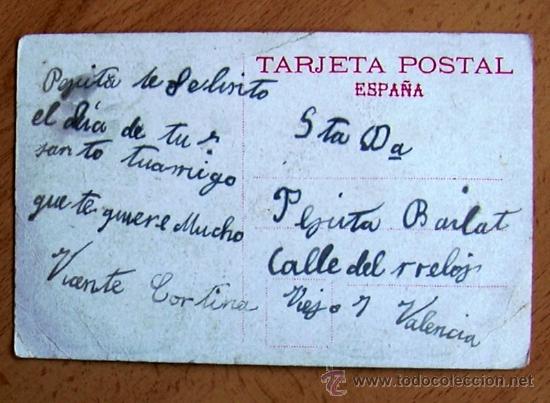 TARJETA POSTAL
ESPAÑA
Pepita te felisito
el día de tu s
santo tu amigo
que te quiere Mucho
Vicente Cortina
Sta Da
Pepita Bailat
Calle del rreloj
Viejo 7 Valencia
todocoleccion
http://www.todocoleccion.net